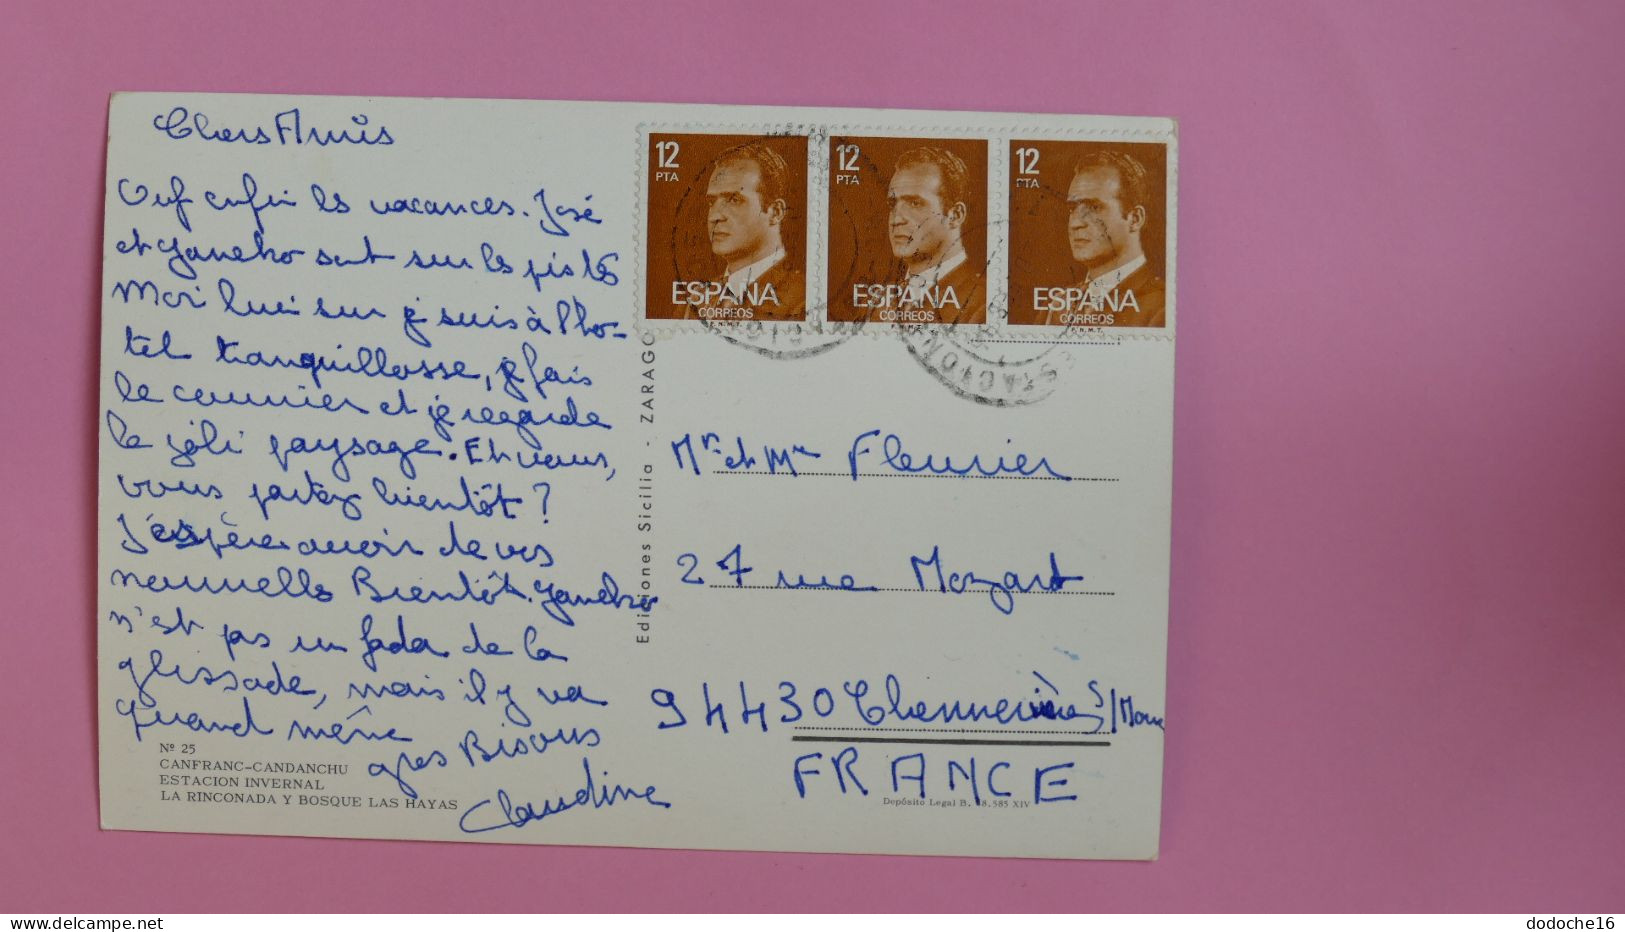 Chers Amis
Ouf enfin les vacances. José
et Yanekso sont sur les pistes
Moi lui sur je suis à l'ho-
tel tranquillosse, je fais
le courrier et je regarde
le joli paysage. Et vous,
vous partez bientôt ?
J'espère avoir de vos
nouvelles Bientôt.
n'est pas un fada de la
glissade, mais il y va
quand même
gros Bisous
Claudine
Nº 25
CANFRANC-CANDANCHU
ESTACION INVERNAL
LA RINCONADA Y BOSQUE LAS HAYAS
Ediciones Sicilia - ZARAGO
12 PTA
ESPAÑA
CORREOS
F.N.M.T.
12 PTA
ESPAÑA
CORREOS
F.N.M.T.
12 PTA
ESPAÑA
CORREOS
F.N.M.T.
Mr et Mme Fleurier
27 rue Mozart
94430 Chennevières S/Marne
FRANCE
Depósito Legal B. 8.585 XIV
dodoche16